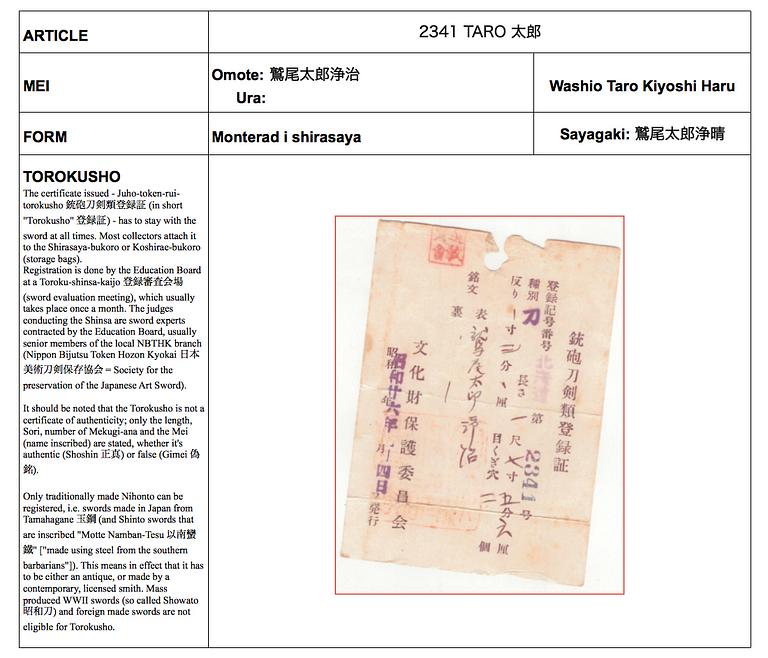 ARTICLE
2341 TARO 太郎
MEI
Omote: 鷲尾太郎浄治
Ura:
Washio Taro Kiyoshi Haru
FORM
Monterad i shirasaya
Sayagaki: 鷲尾太郎浄晴
TOROKUSHO
The certificate issued - Juho-token-rui-
torokusho 銃砲刀剣類登録証 (in short
"Torokusho" 登録証) - has to stay with the
sword at all times. Most collectors attach it
to the Shirasaya-bukoro or Koshirae-bukoro
(storage bags).
Registration is done by the Education Board
at a Toroku-shinsa-kaijo 登録審査会場
(sword evaluation meeting), which usually
takes place once a month. The judges
conducting the Shinsa are sword experts
contracted by the Education Board, usually
senior members of the local NBTHK branch
(Nippon Bijutsu Token Hozon Kyokai 日本
美術刀剣保存協会 = Society for the
preservation of the Japanese Art Sword).
It should be noted that the Torokusho is not a
certificate of authenticity; only the length,
Sori, number of Mekugi-ana and the Mei
(name inscribed) are stated, whether it's
authentic (Shoshin 正真) or false (Gimei 偽
銘).
Only traditionally made Nihonto can be
registered, i.e. swords made in Japan from
Tamahagane 玉鋼 (and Shinto swords that
are inscribed "Motte Namban-Tesu 以南蠻
鐵" ["made using steel from the southern
barbarians"]). This means in effect that it has
to be either an antique, or made by a
contemporary, licensed smith. Mass
produced WWII swords (so called Showato
昭和刀) and foreign made swords are not
eligible for Torokusho.
銃砲刀剣類登録証
登録記号番号 北海道 第 2341 号
種別 刀 長さ 一尺 寸五分 厘
反り 一寸二分 厘 目くぎ穴 二 個
銘文 表 鷲尾太郎浄治
裏
文化財保護委員会
昭和廿六年 月 四日 発行